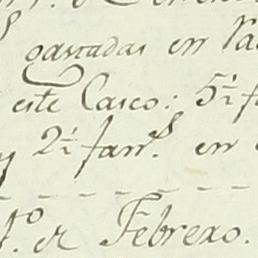 gastadas en
este Casco: 5½
y 2½ fan.s en
to de Febrero.